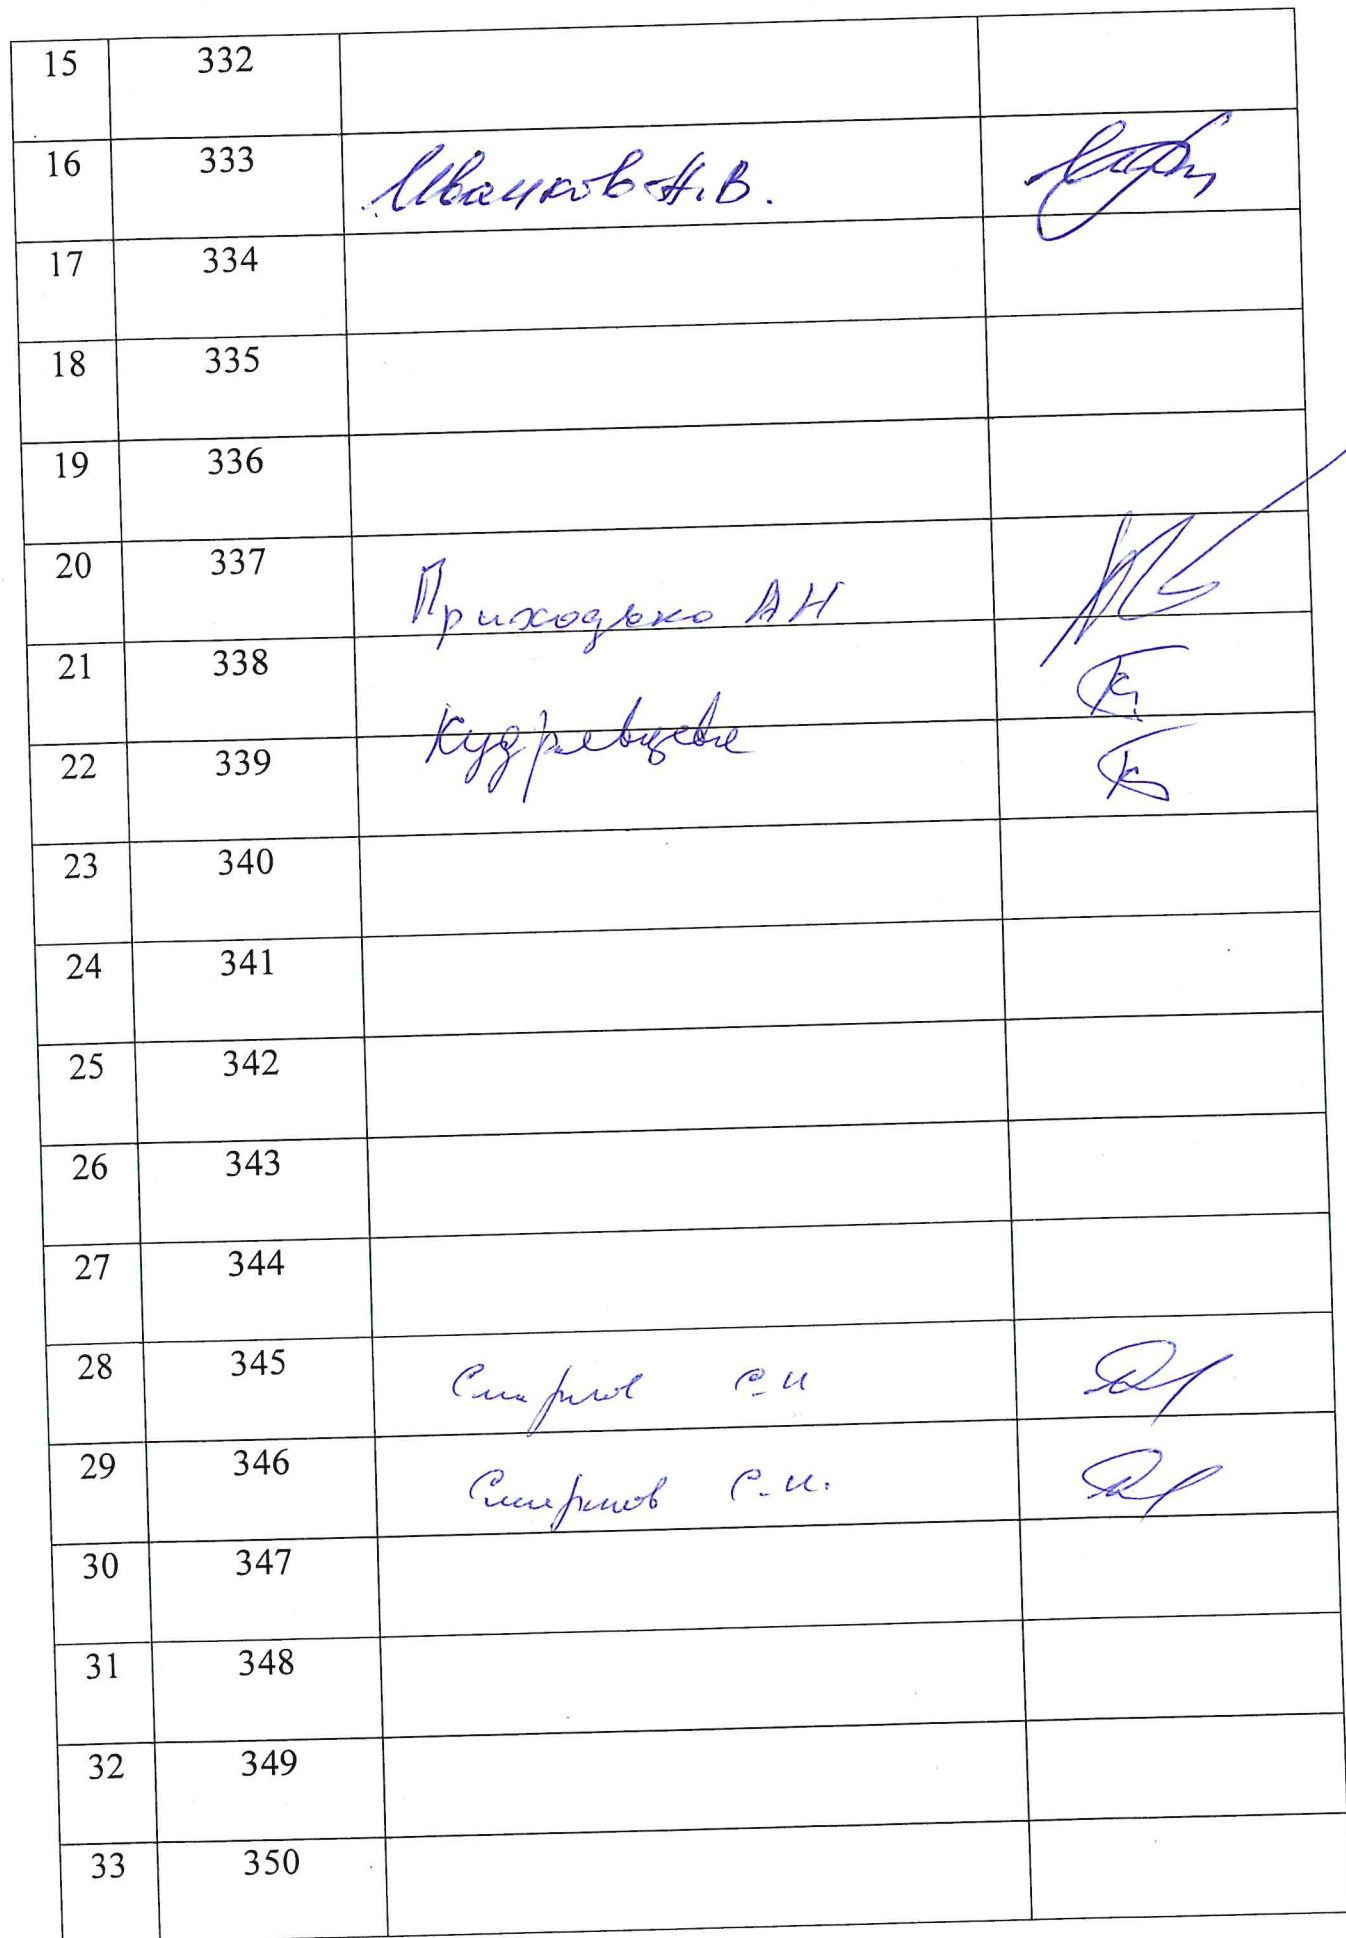 15 332
16 333 Иванков Н.В.
17 334
18 335
19 336
20 337 Приходько А Н
21 338
Кудрявцева
22 339
23 340
24 341
25 342
26 343
27 344
28 345 Смирнов С.И
29 346 Смирнов С.И.
30 347
31 348
32 349
33 350